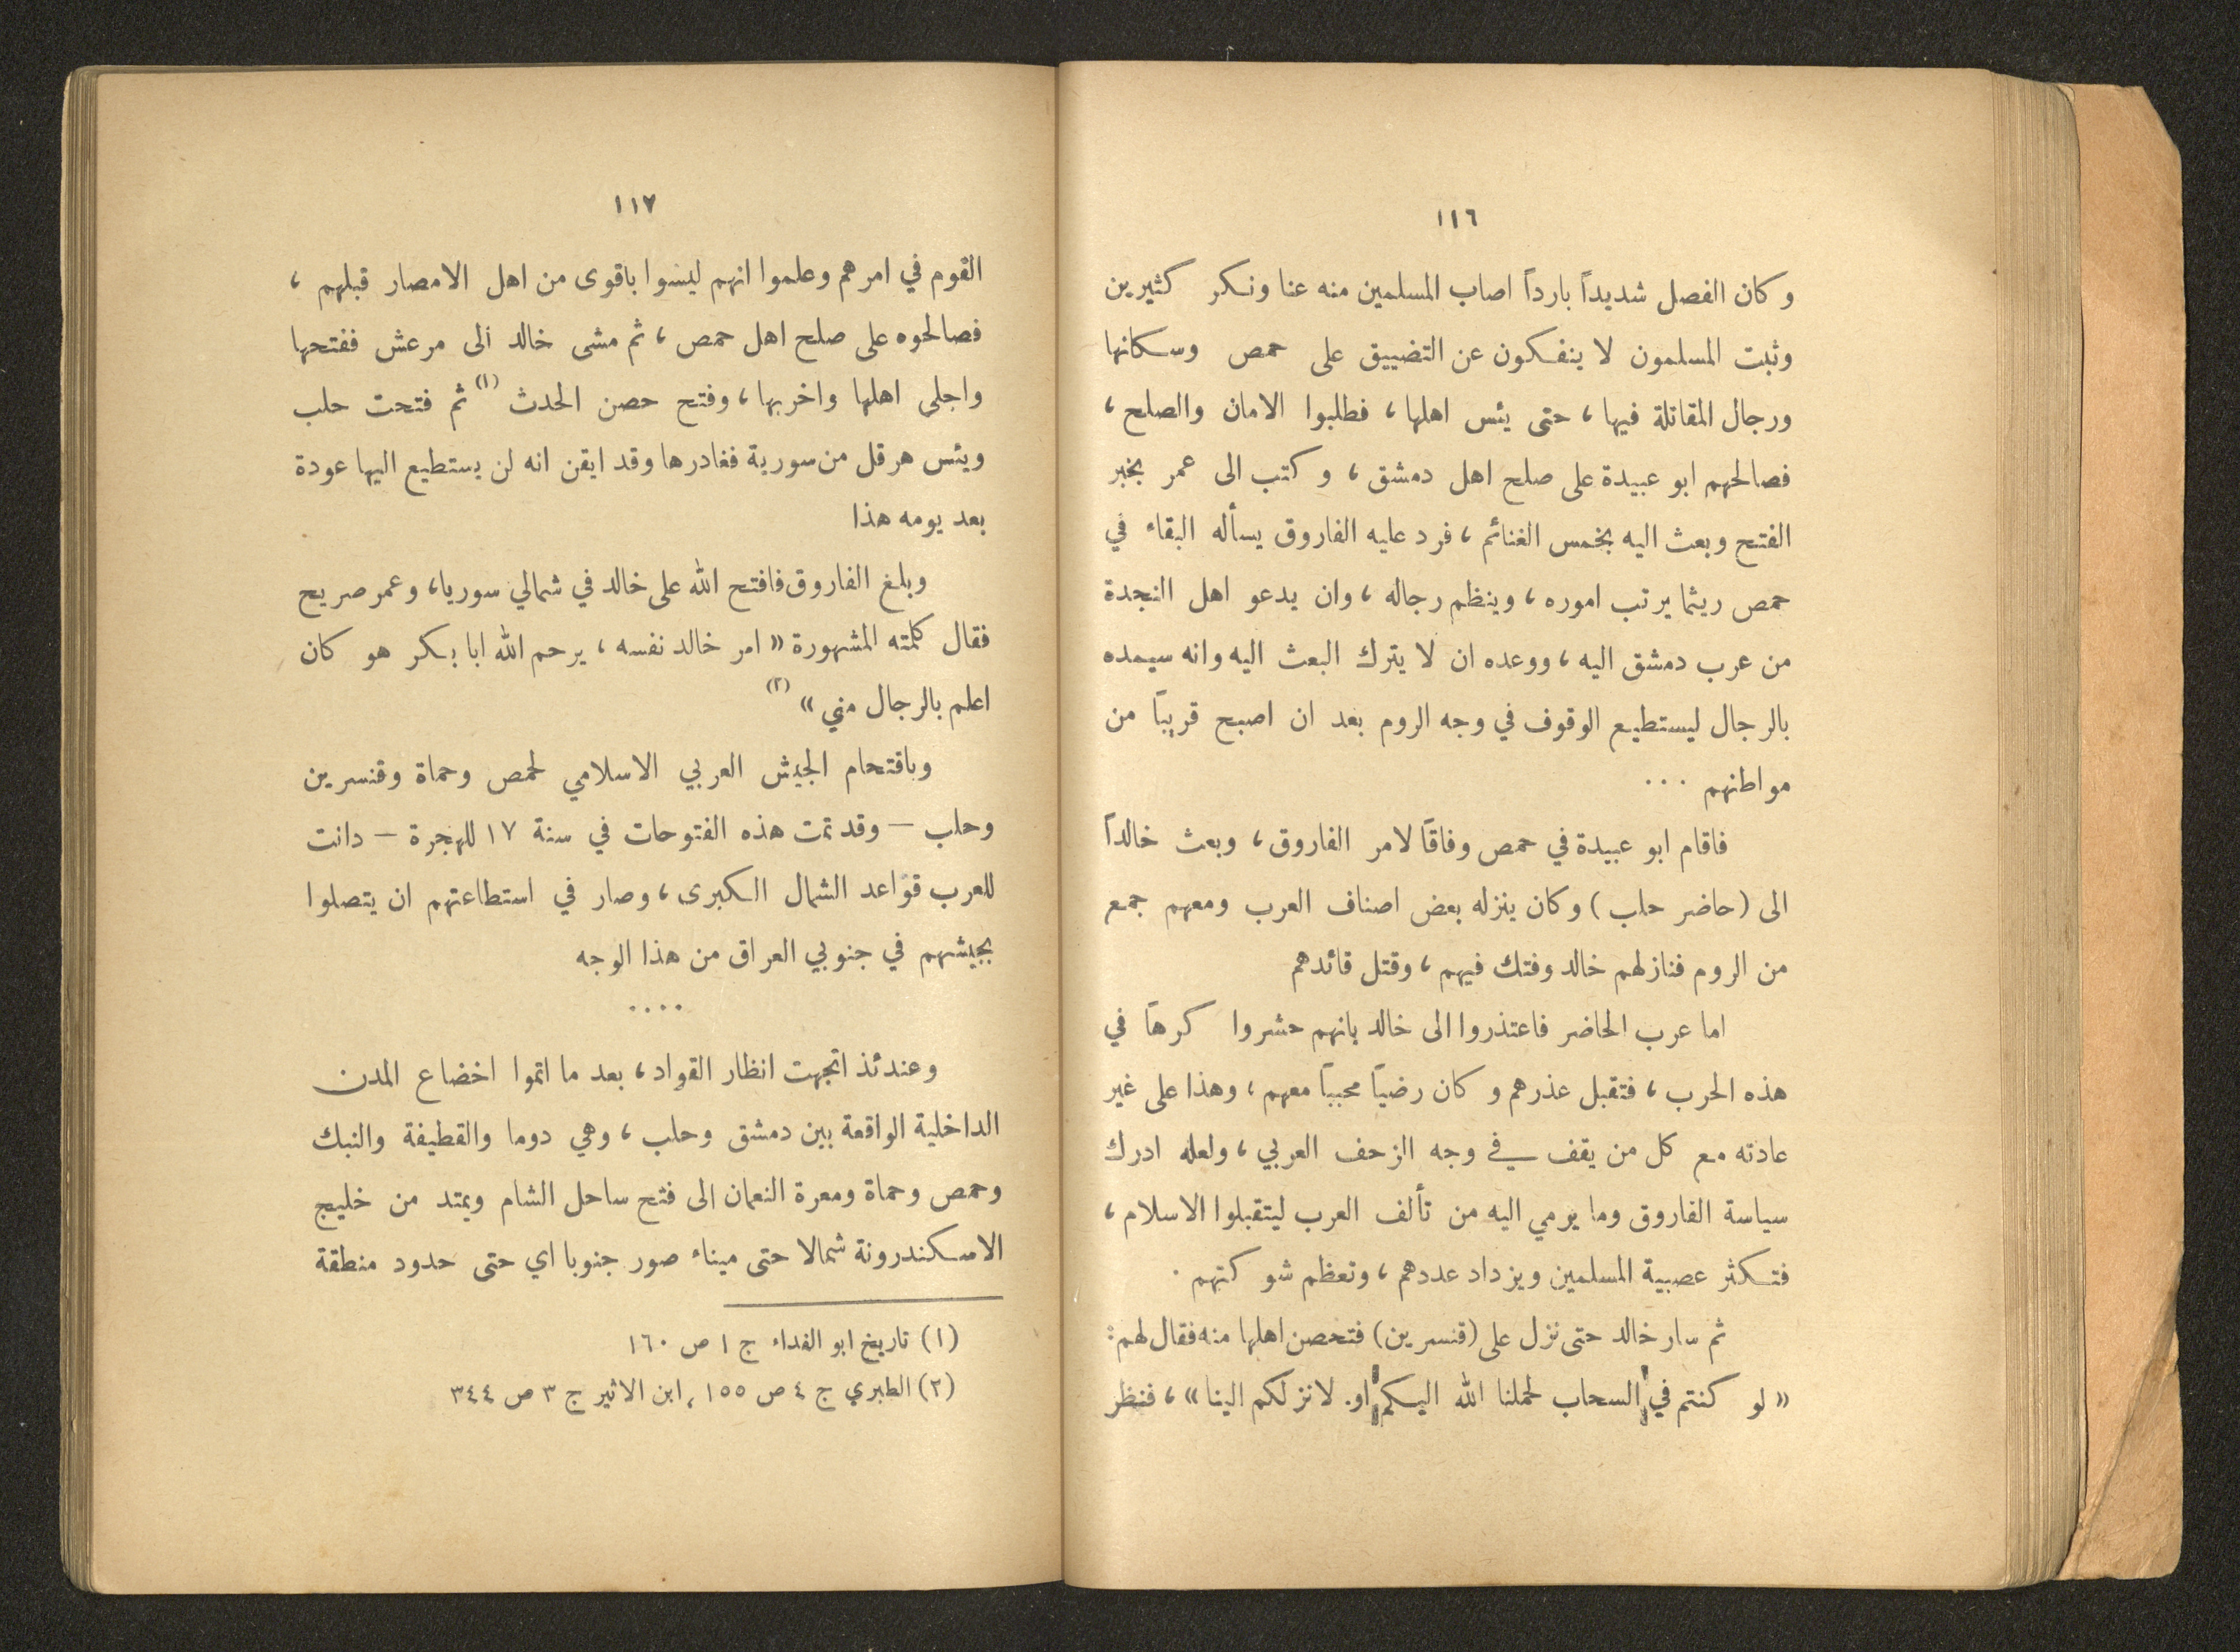 ١١٦
وكان الفصل شديداً بارداً اصاب المسلمين منه عنا ونكر كثيرين
وثبت المسلمون لا ينفكون عن التضييق على حمص وسكانها
ورجال المقاتلة فيها، حتى يئس اهلها، فطلبوا الامان والصلح،
فصالحهم ابو عبيدة على صلح اهل دمشق، وكتب الى عمر بخبر
الفتح وبعث اليه بخمس الغنائم، فرد عليه الفاروق يسأله البقاء في
حمص ريثما يرتب اموره، وينظم رجاله، وان يدعو اهل النجدة
من عرب دمشق اليه، ووعده ان لا يترك البعث اليه وانه سيمده
بالرجال ليستطيع الوقوف في وجه الروم بعد ان اصبح قريباً من
مواطنهم ...
فاقام ابو عبيدة في حمص وفاقاً لامر الفاروق، وبعث خالداً
الى (حاضر حلب) وكان ينزله بعض اصناف العرب ومعهم جمع
من الروم فنازلهم خالد وفتك فيهم، وقتل قائدهم
اما عرب الحاضر فاعتذروا الى خالد بانهم حشروا كرهاً في
هذه الحرب، فتقبل عذرهم وكان رضياً محبباً معهم، وهذا على غير
عادته مع كل من يقف في وجه الزحف العربي، ولعله ادرك
سياسة الفاروق وما يرمي اليه من تألف العرب ليتقبلوا الاسلام،
فتكثر عصبية المسلمين ويزداد عددهم، وتعظم شوكتهم.
ثم سار خالد حتى نزل على (قنسرين) فتحصن اهلها منه فقال لهم:
« لو كنتم في السحاب لحملنا الله اليكم او. لانزلكم الينا»، فنظر
١١٧
القوم في امرهم وعلموا انهم ليسوا باقوى من اهل الامصار قبلهم،
فصالحوه على صلح اهل حمص، ثم مشى خالد الى مرعش ففتحها
واجلى اهلها واخربها، وفتح حصن الحدث (١) ثم فتحت حلب
ويئس هرقل من سورية فغادرها وقد ايقن انه لن يستطيع اليها عودة
بعد يومه هذا
وبلغ الفاروق فافتح الله على خالد في شمالي سوريا، وعمر صريح
فقال كلمته المشهورة « امر خالد نفسه، يرحم الله ابا بكر هو كان
اعلم بالرجال مني » (٢)
وباقتحام الجيش العربي الاسلامي لحمص وحماة وقنسرين
وحلب — وقد تمت هذه الفتوحات في سنة ١٧ للهجرة — دانت
للعرب قواعد الشمال الكبرى، وصار في استطاعتهم ان يتصلوا
بجيشهم في جنوبي العراق من هذا الوجه
....
وعندئذ اتجهت انظار القواد، بعد ما اتموا اخضاع المدن
الداخلية الواقعة بين دمشق وحلب، وهي دوما والقطيفة والنبك
وحمص وحماة ومعرة النعمان الى فتح ساحل الشام ويمتد من خليج
الاسكندرونة شمالا حتى ميناء صور جنوبا اي حتى حدود منطقة
(١) تاريخ ابو الفداء ج ١ ص ١٦٠
(٢) الطبري ج ٤ ص ١٥٥، ابن الاثير ج ٣ ص ٣٤٤